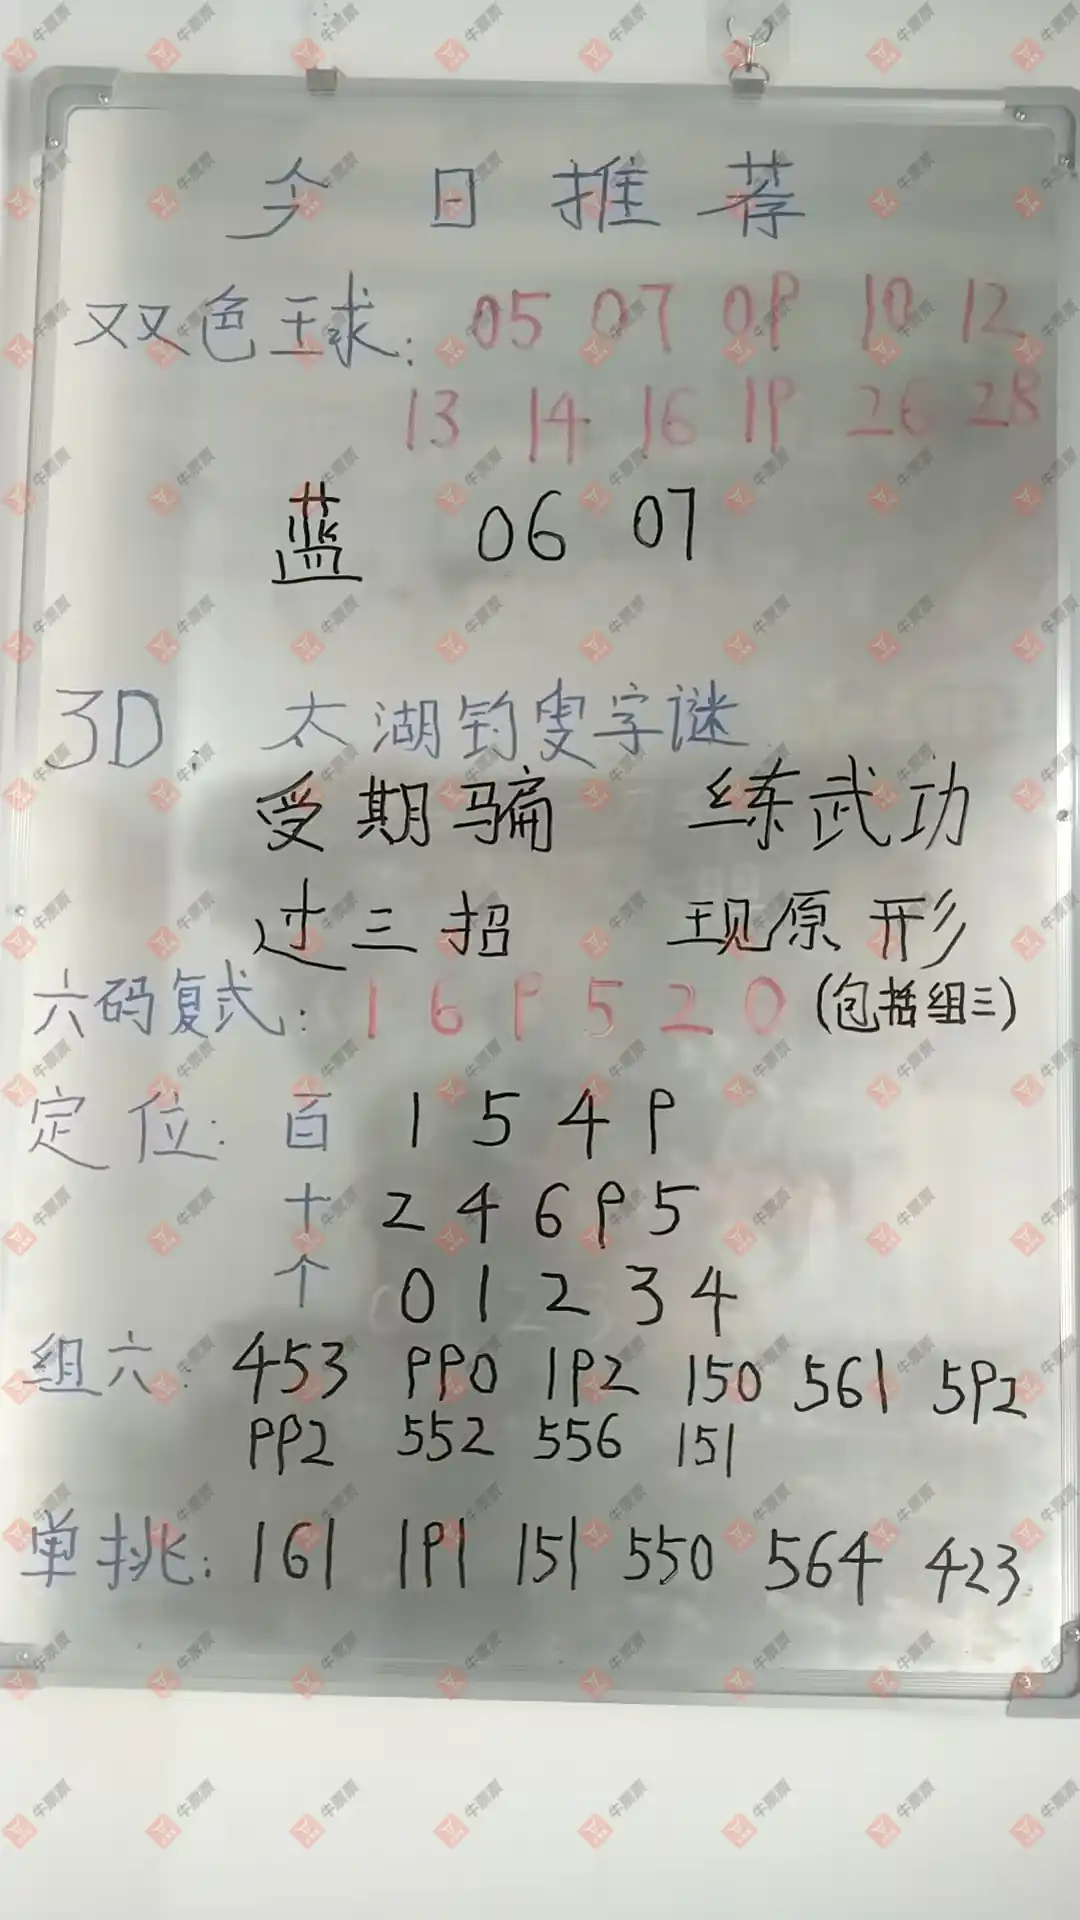 今日推荐
双色球: 05 07 09 10 12
13 14 16 19 26 28
蓝 06 07
3D: 太湖钓叟字谜
受期骗 练武功
过三招 现原形
六码复式: 1 6 9 5 2 0 (包括组三)
定位: 百 1 5 4 9
十 2 4 6 9 5
个 0 1 2 3 4
组六: 453 990 192 150 561 592
992 552 556 151
单挑: 161 191 151 550 564 423
牛票票